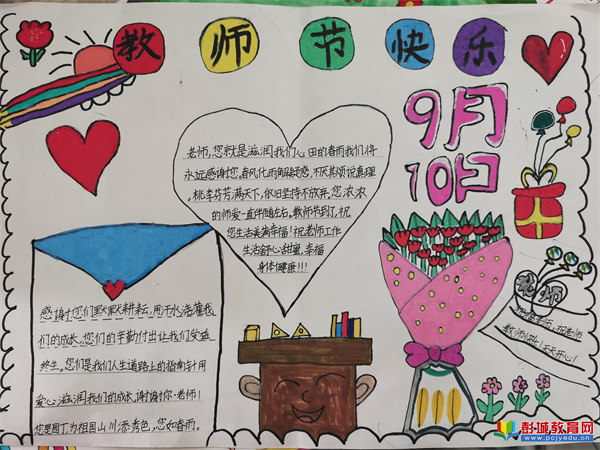 教师节快乐
9月
10日
老师,您就是滋润我们心田的春雨我们将
永远感谢您。春风化雨解疑惑,不厌其烦说真理
。桃李芬芳满天下,依旧坚持不放弃。您浓浓
的师爱一直伴随左右。教师节到了,祝
您生活美满幸福!祝老师工作
生活舒心甜蜜,幸福
身体健康!!!
感谢您们默默耕耘,用汗水浇灌我
们的成长。您们的辛勤付出让我们受益
终生。您们是我们人生道路上的指南针用
爱心滋润我们的成长,谢谢你,老师!
您是园丁为祖国山川添秀色,您如春雨。
老师
教师节快乐,天天开心!
彭城教育网
www.pcjyedu.cn